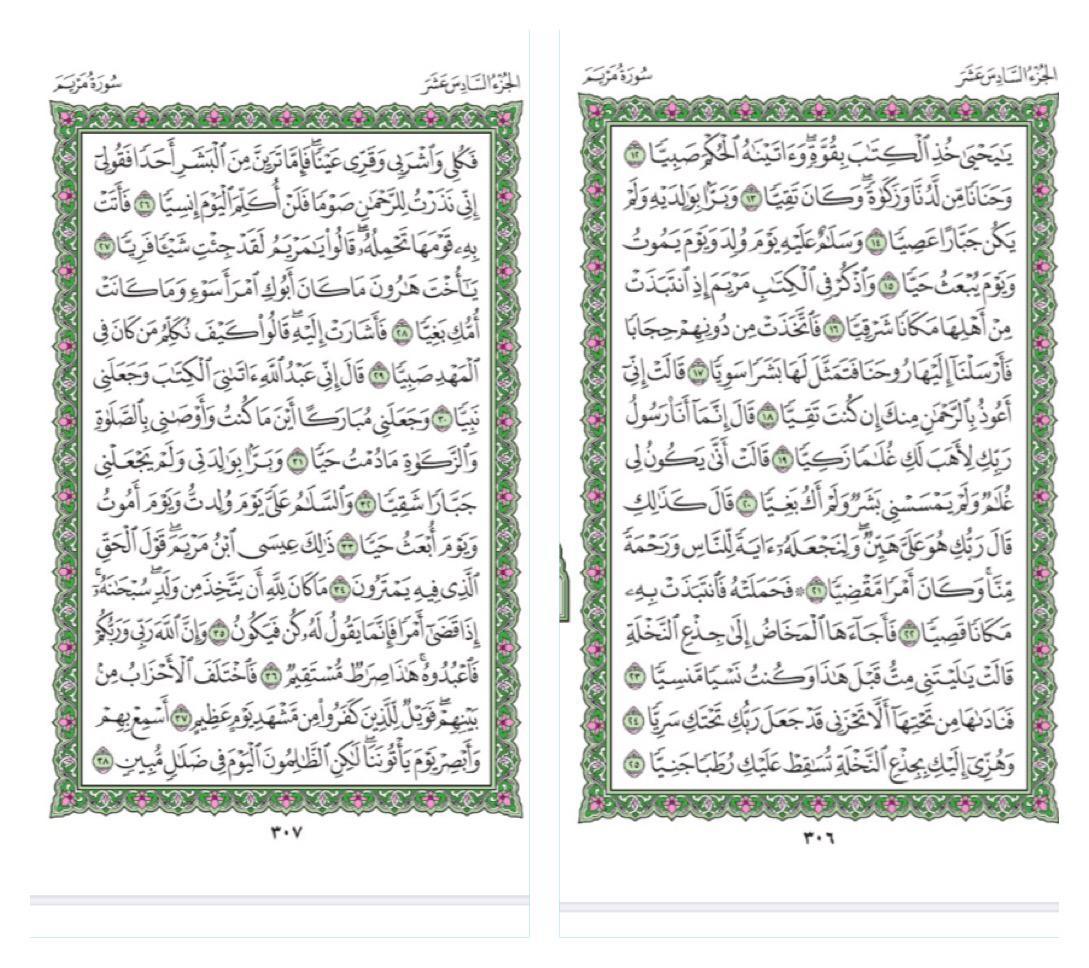 الجُزْءُ السَّادِسَ عَشَرَ
سُورَةُ مَرْيَم
يَٰيَحْيَىٰ خُذِ ٱلْكِتَٰبَ بِقُوَّةٍۖ وَءَاتَيْنَٰهُ ٱلْحُكْمَ صَبِيًّا ١٢
وَحَنَانًا مِّن لَّدُنَّا وَزَكَوٰةًۖ وَكَانَ تَقِيًّا ١٣ وَبَرًّۢا بِوَٰلِدَيْهِ وَلَمْ
يَكُن جَبَّارًا عَصِيًّا ١٤ وَسَلَٰمٌ عَلَيْهِ يَوْمَ وُلِدَ وَيَوْمَ يَمُوتُ
وَيَوْمَ يُبْعَثُ حَيًّا ١٥ وَٱذْكُرْ فِى ٱلْكِتَٰبِ مَرْيَمَ إِذِ ٱنتَبَذَتْ
مِنْ أَهْلِهَا مَكَانًا شَرْقِيًّا ١٦ فَٱتَّخَذَتْ مِن دُونِهِمْ حِجَابًا
فَأَرْسَلْنَآ إِلَيْهَا رُوحَنَا فَتَمَثَّلَ لَهَا بَشَرًا سَوِيًّا ١٧ قَالَتْ إِنِّىٓ
أَعُوذُ بِٱلرَّحْمَٰنِ مِنكَ إِن كُنتَ تَقِيًّا ١٨ قَالَ إِنَّمَآ أَنَا۠ رَسُولُ
رَبِّكِ لِأَهَبَ لَكِ غُلَٰمًا زَكِيًّا ١٩ قَالَتْ أَنَّىٰ يَكُونُ لِى
غُلَٰمٌ وَلَمْ يَمْسَسْنِى بَشَرٌ وَلَمْ أَكُ بَغِيًّا ٢٠ قَالَ كَذَٰلِكِ
قَالَ رَبُّكِ هُوَ عَلَىَّ هَيِّنٌۖ وَلِنَجْعَلَهُۥٓ ءَايَةً لِّلنَّاسِ وَرَحْمَةً
مِّنَّاۚ وَكَانَ أَمْرًا مَّقْضِيًّا ٢١ ۞ فَحَمَلَتْهُ فَٱنتَبَذَتْ بِهِۦ
مَكَانًا قَصِيًّا ٢٢ فَأَجَآءَهَا ٱلْمَخَاضُ إِلَىٰ جِذْعِ ٱلنَّخْلَةِ
قَالَتْ يَٰلَيْتَنِى مِتُّ قَبْلَ هَٰذَا وَكُنتُ نَسْيًا مَّنسِيًّا ٢٣
فَنَادَىٰهَا مِن تَحْتِهَآ أَلَّا تَحْزَنِى قَدْ جَعَلَ رَبُّكِ تَحْتَكِ سَرِيًّا ٢٤
وَهُزِّىٓ إِلَيْكِ بِجِذْعِ ٱلنَّخْلَةِ تُسَٰقِطْ عَلَيْكِ رُطَبًا جَنِيًّا ٢٥
٣٠٦
الجُزْءُ السَّادِسَ عَشَرَ
سُورَةُ مَرْيَم
فَكُلِى وَٱشْرَبِى وَقَرِّى عَيْنًاۖ فَإِمَّا تَرَيِنَّ مِنَ ٱلْبَشَرِ أَحَدًا فَقُولِىٓ
إِنِّى نَذَرْتُ لِلرَّحْمَٰنِ صَوْمًا فَلَنْ أُكَلِّمَ ٱلْيَوْمَ إِنسِيًّا ٢٦ فَأَتَتْ
بِهِۦ قَوْمَهَا تَحْمِلُهُۥۖ قَالُوا۟ يَٰمَرْيَمُ لَقَدْ جِئْتِ شَيْـًٔا فَرِيًّا ٢٧
يَٰٓأُخْتَ هَٰرُونَ مَا كَانَ أَبُوكِ ٱمْرَأَ سَوْءٍ وَمَا كَانَتْ
أُمُّكِ بَغِيًّا ٢٨ فَأَشَارَتْ إِلَيْهِۖ قَالُوا۟ كَيْفَ نُكَلِّمُ مَن كَانَ فِى
ٱلْمَهْدِ صَبِيًّا ٢٩ قَالَ إِنِّى عَبْدُ ٱللَّهِ ءَاتَىٰنِىَ ٱلْكِتَٰبَ وَجَعَلَنِى
نَبِيًّا ٣٠ وَجَعَلَنِى مُبَارَكًا أَيْنَ مَا كُنتُ وَأَوْصَٰنِى بِٱلصَّلَوٰةِ
وَٱلزَّكَوٰةِ مَا دُمْتُ حَيًّا ٣١ وَبَرًّۢا بِوَٰلِدَتِى وَلَمْ يَجْعَلْنِى
جَبَّارًا شَقِيًّا ٣٢ وَٱلسَّلَٰمُ عَلَىَّ يَوْمَ وُلِدتُّ وَيَوْمَ أَمُوتُ
وَيَوْمَ أُبْعَثُ حَيًّا ٣٣ ذَٰلِكَ عِيسَى ٱبْنُ مَرْيَمَۖ قَوْلَ ٱلْحَقِّ
ٱلَّذِى فِيهِ يَمْتَرُونَ ٣٤ مَا كَانَ لِلَّهِ أَن يَتَّخِذَ مِن وَلَدٍۖ سُبْحَٰنَهُۥٓۚ
إِذَا قَضَىٰٓ أَمْرًا فَإِنَّمَا يَقُولُ لَهُۥ كُن فَيَكُونُ ٣٥ وَإِنَّ ٱللَّهَ رَبِّى وَرَبُّكُمْ
فَٱعْبُدُوهُۚ هَٰذَا صِرَٰطٌ مُّسْتَقِيمٌ ٣٦ فَٱخْتَلَفَ ٱلْأَحْزَابُ مِنۢ
بَيْنِهِمْۖ فَوَيْلٌ لِّلَّذِينَ كَفَرُوا۟ مِن مَّشْهَدِ يَوْمٍ عَظِيمٍ ٣٧ أَسْمِعْ بِهِمْ
وَأَبْصِرْ يَوْمَ يَأْتُونَنَاۖ لَٰكِنِ ٱلظَّٰلِمُونَ ٱلْيَوْمَ فِى ضَلَٰلٍ مُّبِينٍ ٣٨
٣٠٧